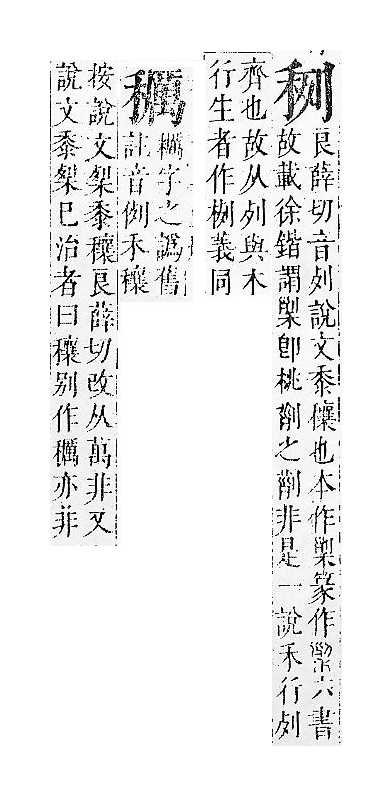 䅀
良薛切音列說文黍穰也本作篆作六書
故載徐鍇謂卽桃之非是一說禾行列
齊也故从列與木
行生者作栵義同
字之譌舊
註音例禾穰
按說文黍穰良薛切改从萬非又
說文黍已治者曰穰别作亦非